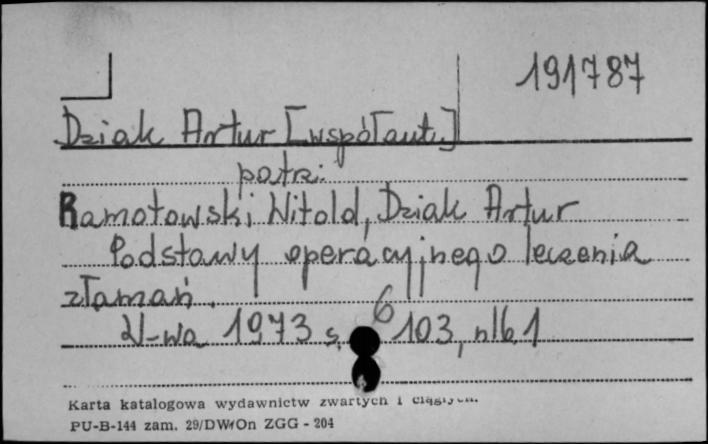 191787
Dziak Artur [współaut.]
patrz:
Ramotowski Witold, Dziak Artur
Podstawy operacyjnego leczenia
złamań.
W-wa 1973 s. 6 103, nlb 1
Karta katalogowa wydawnictw zwartych i ciągłych.
PU-B-144 zam. 29/DWOn ZGG - 204